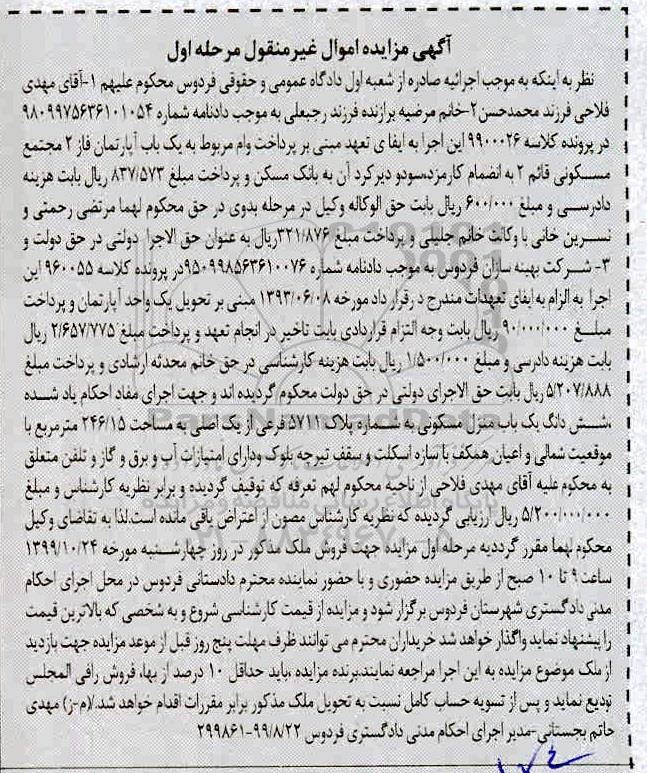 آگهی مزایده اموال غیرمنقول مرحله اول
نظر به اینکه به موجب اجرائیه صادره از شعبه اول دادگاه عمومی و حقوقی فردوس محکوم علیهم ۱-آقای مهدی
فلاحی فرزند محمدحسن ۲-خانم مرضیه برازنده فرزند رجبعلی به موجب دادنامه شماره ۹۸۰۹۹۷۵۶۳۶۱۰۱۰۵۴
در پرونده کلاسه ۹۹۰۰۰۲۶ این اجرا به ایفا ی تعهد مبنی بر پرداخت وام مربوط به یک باب آپارتمان فاز ۲ مجتمع
مسکونی قائم ۲ به انضمام کارمزد،سودو دیرکرد آن به بانک مسکن و پرداخت مبلغ ۸۳۷/۵۷۳ ریال بابت هزینه
دادرسی و مبلغ ۶۰۰/۰۰۰ ریال بابت حق الوکاله وکیل در مرحله بدوی در حق محکوم لهما مرتضی رحمتی و
نسرین خانی با وکالت خانم جلیلی و پرداخت مبلغ ۳۲۱/۸۷۶ریال به عنوان حق الاجرا دولتی در حق دولت و
۳- شرکت بهینه سازان فردوس به موجب دادنامه شماره ۹۵۰۹۹۸۵۶۳۶۱۰۰۷۶در پرونده کلاسه ۹۶۰۰۵۵ این
اجرا به الزام به ایفای تعهدات مندرج د رقرار داد مورخه ۱۳۹۳/۰۶/۰۸ مبنی بر تحویل یک واحد آپارتمان و پرداخت
مبلغ ۹۰/۰۰۰/۰۰۰ ریال بابت وجه التزام قراردادی بابت تاخیر در انجام تعهد و پرداخت مبلغ ۲/۶۵۷/۷۷۵ ریال
بابت هزینه دادرسی و مبلغ ۱/۵۰۰/۰۰۰ ریال بابت هزینه کارشناسی در حق خانم محدثه ارشادی و پرداخت مبلغ
۵/۲۰۷/۸۸۸ ریال بابت حق الاجرای دولتی در حق دولت محکوم گردیده اند و جهت اجرای مفاد احکام یاد شده
،شش دانگ یک باب منزل مسکونی به شماره پلاک ۵۷۱۱ فرعی از یک اصلی به مساحت ۲۴۶/۱۵ مترمربع با
موقعیت شمالی و اعیان همکف با سازه اسکلت و سقف تیرچه بلوک ودارای امتیازات آب و برق و گاز و تلفن متعلق
به محکوم علیه آقای مهدی فلاحی از ناحیه محکوم لهم تعرفه که توقیف گردیده و برابر نظریه کارشناس و مبلغ
۵/۲۰۰/۰۰۰/۰۰۰ ریال ارزیابی گردیده که نظریه کارشناس مصون از اعتراض باقی مانده است.لذا به تقاضای وکیل
محکوم لهما مقرر گرددیه مرحله اول مزایده جهت فروش ملک مذکور در روز چهارشنبه مورخه ۱۳۹۹/۱۰/۲۴
ساعت ۹ تا ۱۰ صبح از طریق مزایده حضوری و با حضور نماینده محترم دادستانی فردوس در محل اجرای احکام
مدنی دادگستری شهرستان فردوس برگزار شود و مزایده از قیمت کارشناسی شروع و به شخصی که بالاترین قیمت
را پیشنهاد نماید واگذار خواهد شد خریداران محترم می توانند ظرف مهلت پنج روز قبل از موعد مزایده جهت بازدید
از ملک موضوع مزایده به این اجرا مراجعه نمایند،برنده مزایده ،باید حداقل ۱۰ درصد از بهاء فروش رافی المجلس
تودیع نماید و پس از تسویه حساب کامل نسبت به تحویل ملک مذکور برابر مقررات اقدام خواهد شد./(م-ز) مهدی
حاتم بجستانی-مدیر اجرای احکام مدنی دادگستری فردوس ۹۹/۸/۲۲-۲۹۹۸۶۱